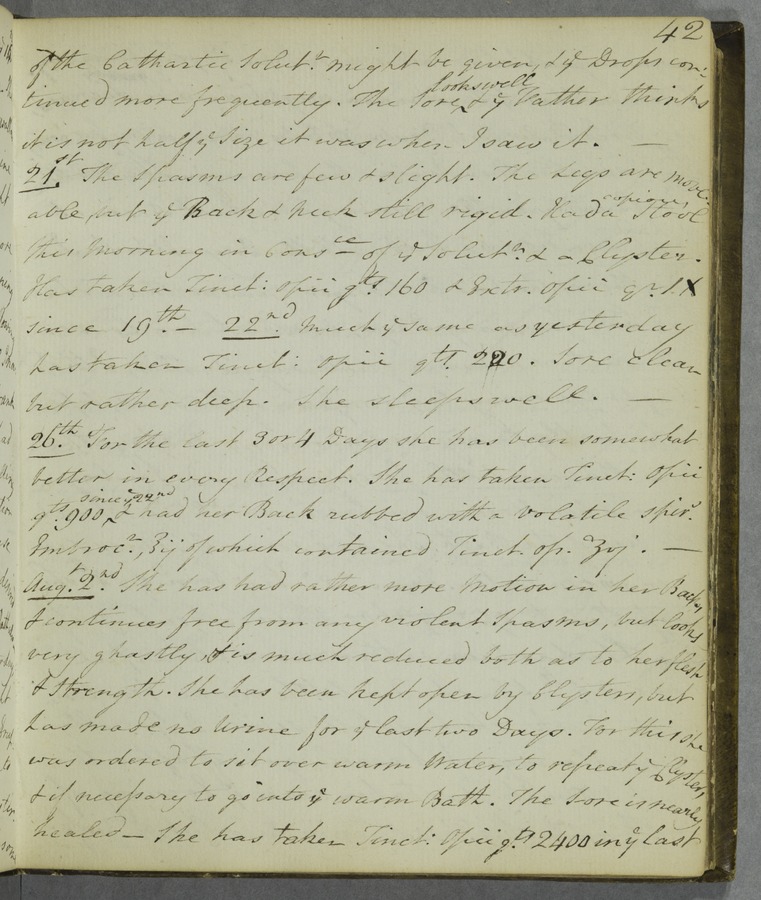 42
of the Cathartic Solutn. might be given, & ye Drops con-
tinued more frequently. The Sore looks well, & ye Father thinks
it is not half ye Size it was when I saw it. —
21st. The Spasms are few & slight. The Legs are move-
able, but ye Back & Neck still rigid. Had a copious Stool
this Morning in Consce of ye Solutn. & a Clyster.
Has taken Tinct: Opii gts 160 & Extr. Opii gr. IX
since 19th. — 22nd. Much ye same as yesterday
has taken Tinct: Opii gts. 220. Sore clean
but rather deep. She sleeps well. —
26th. For the last 3 or 4 Days she has been somewhat
better in every Respect. She has taken Tinct: Opii
gts. 900 since ye 22nd, & had her Back rubbed with a volatile spir.
Embrocn., ℥ij of which contained Tinct. op. ʒvj. —
Augt. 2nd. She has had rather more Motion in her Back,
& continues free from any violent Spasms, but looks
very ghastly, & is much reduced both as to her flesh
& Strength. She has been kept open by Clysters, but
has made no Urine for ye last two Days. For this she
was ordered to sit over warm Water, to repeat ye Clysters,
& if necessary to go into ye warm Bath. The Sore is nearly
healed — She has taken Tinct: Opii gts 2400 in ye last